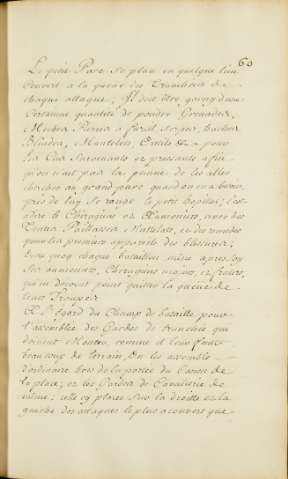 60
Le petit Parc se place en quelque lieu
couvert a la queüe des Tranchées de
chaque attaque; Il doit être garny d'une
Certaine quantité de poudre, Grenades,
Meches, Pierres a fusil, Serpes, haches
Blindes, Mantelets, Outils &c pour
les Cas Survenants et pressants afin
qu'on n'ait pas la peine de les aller
chercher au grand parc quand on en a besoin,
près de luy Se range le petit hopital, C'est
adire le Chirugiens et Aumoniers, avec des
Tentes Paillasses Matelats, et des remedes
pour les premiers appareils des blessures;
Bien que chaque bataillon mène après soy
Ses aumoniers, Chirugiens majors, et fraters,
qui ne doivent point quitter la queüe de
leurs Troupes
A l'Egard du Champ de bataille pour
l'assemblée des Gardes de tranchée qui
doivent Monter, comme il leur faut
beaucoup de terrain, On les assemble
d'ordinaire hors de la portée du Canon de
la place; et les Gardes de Cavalerie de
même; celle cy placée Sur la droitte et la
gauche des attaques le plus a couvert que